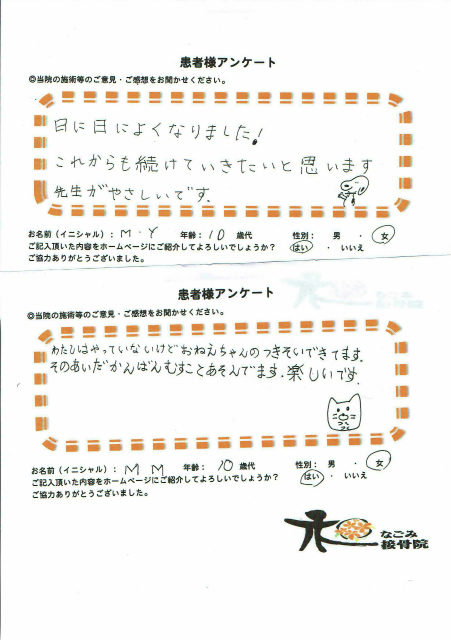 患者様アンケート
◎当院の施術等のご意見・ご感想をお聞かせください。
日に日によくなりました!
これからも続けていきたいと思います
先生がやさしいです.
お名前（イニシャル）：M・Y 年齢：10 歳代 性別： 男 ・ 女
ご記入頂いた内容をホームページにご紹介してよろしいでしょうか？ はい ・ いいえ
ご協力ありがとうございました。
患者様アンケート
◎当院の施術等のご意見・ご感想をお聞かせください。
わたしはやっていないけどおねえちゃんのつきそいできてます.
そのあいだかんばんむすことあそんでます.楽しいです.
お名前（イニシャル）：M M 年齢：10 歳代 性別： 男 ・ 女
ご記入頂いた内容をホームページにご紹介してよろしいでしょうか？ はい ・ いいえ
ご協力ありがとうございました。
なごみ
接骨院